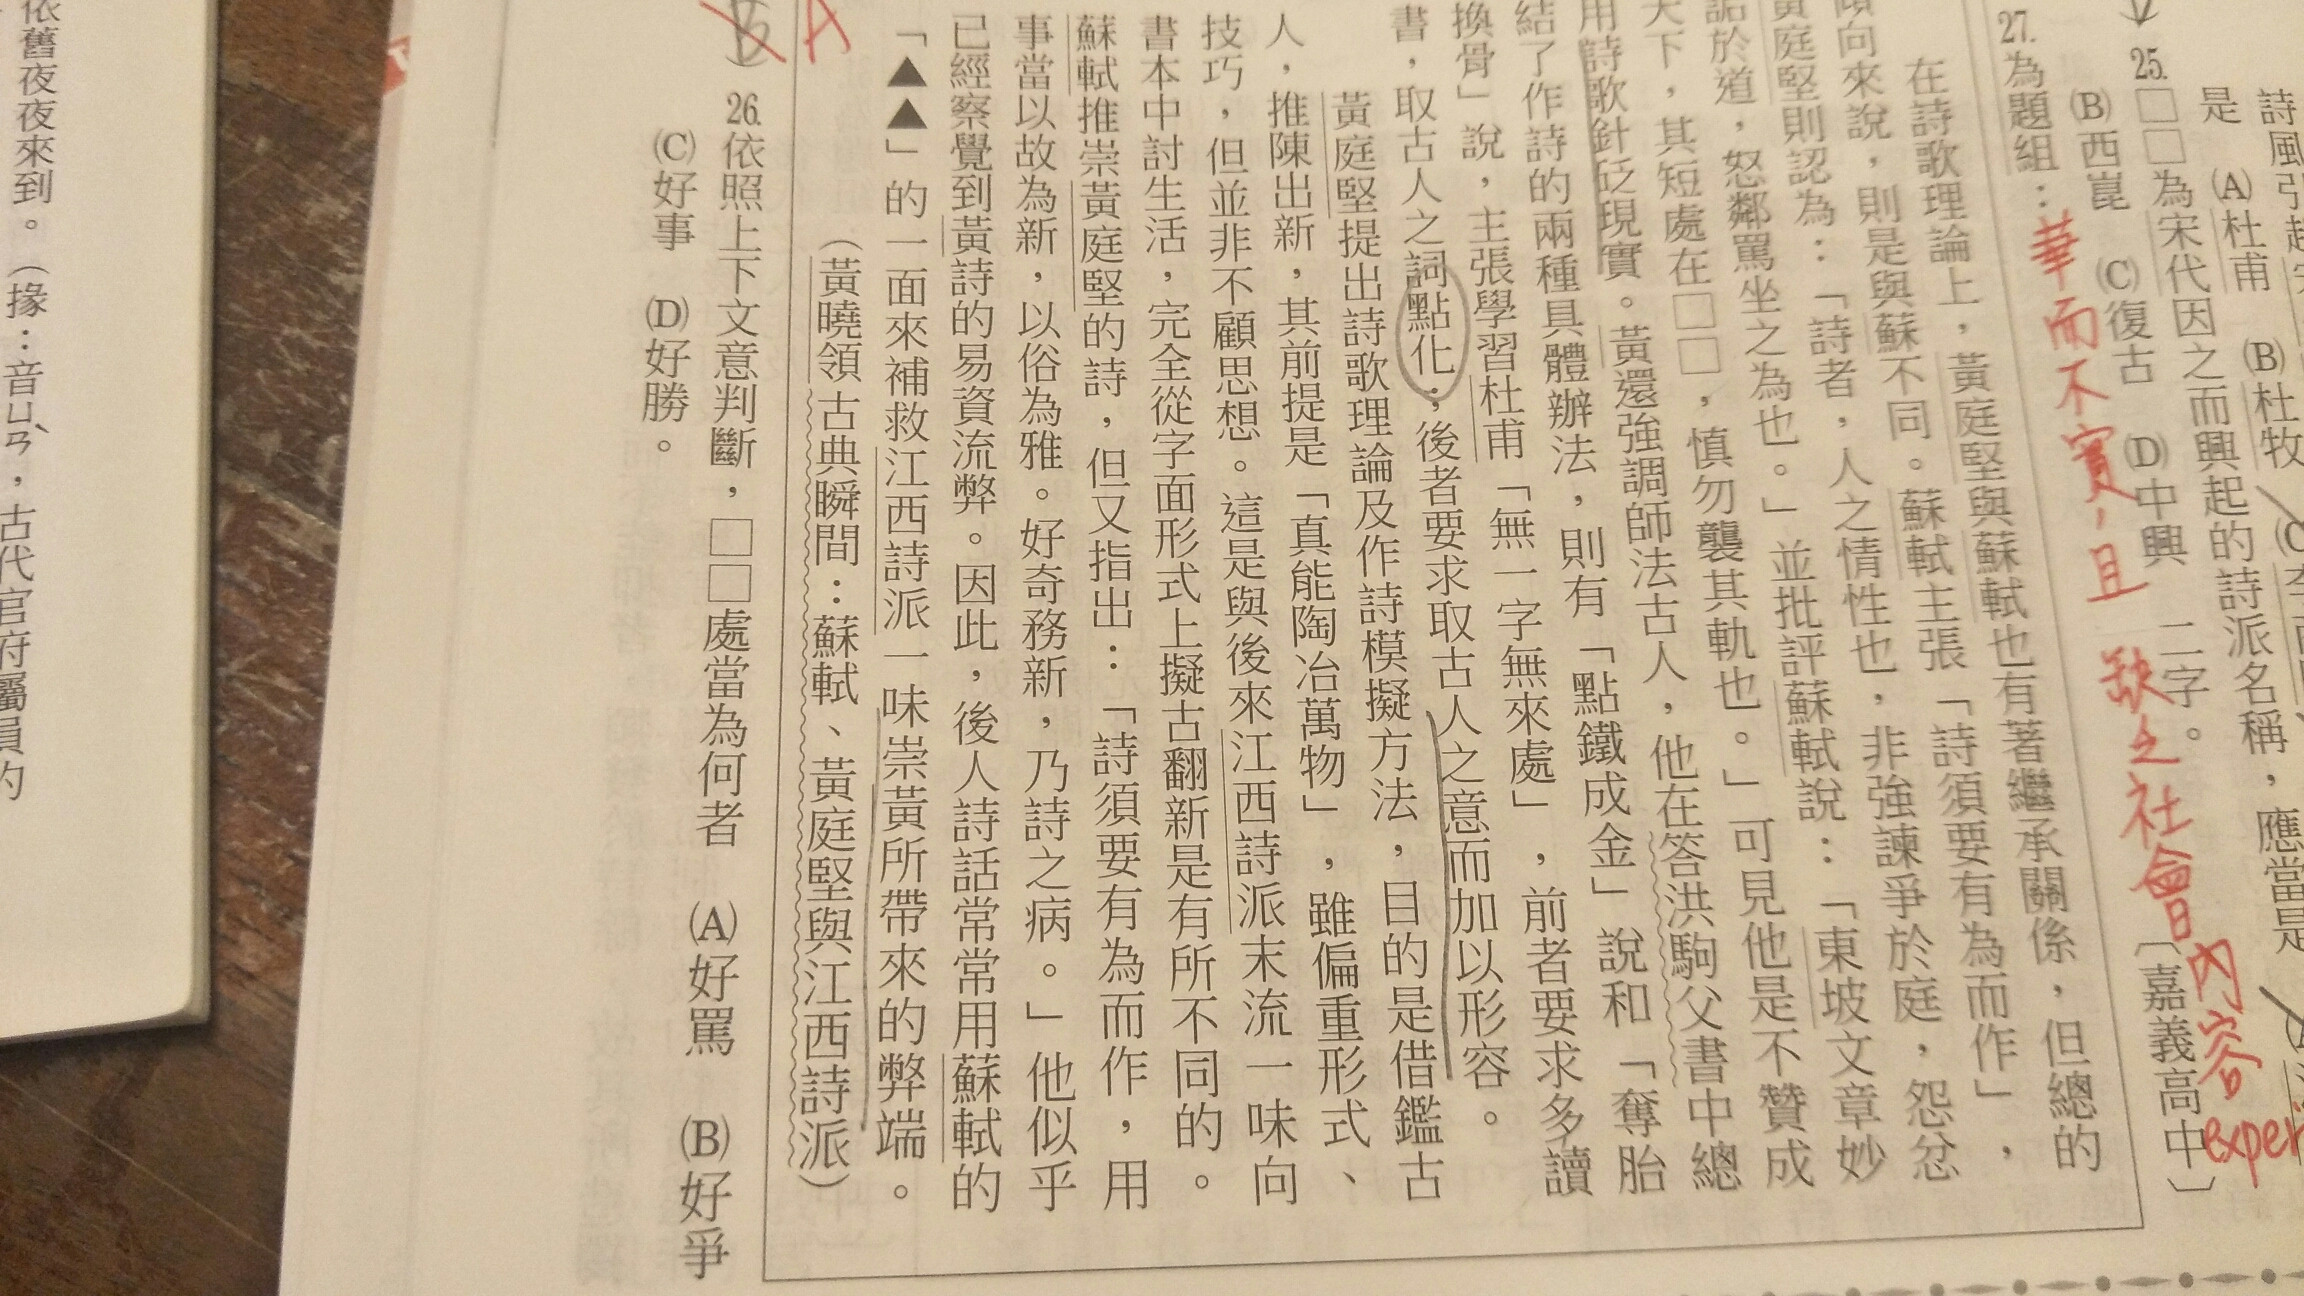 詩風引起
是　(A)杜甫　(B)杜牧
25.□□為宋代因之而興起的詩派名稱，應當是
(B)西崑　(C)復古　(D)中興　二字。
27.為題組：
華而不實，且缺乏社會內容
〔嘉義高中〕
在詩歌理論上，黃庭堅與蘇軾也有著繼承關係，但總的
傾向來說，則是與蘇不同。蘇軾主張「詩須要有為而作」，
黃庭堅則認為：「詩者，人之情性也，非強諫爭於庭，怨忿
詬於道，怒鄰罵坐之為也。」並批評蘇軾說：「東坡文章妙
天下，其短處在□□，慎勿襲其軌也。」可見他是不贊成
用詩歌針砭現實。黃還強調師法古人，他在答洪駒父書中總
結了作詩的兩種具體辦法，則有「點鐵成金」說和「奪胎
換骨」說，主張學習杜甫「無一字無來處」，前者要求多讀
書，取古人之詞點化；後者要求取古人之意而加以形容。
黃庭堅提出詩歌理論及作詩模擬方法，目的是借鑑古
人，推陳出新，其前提是「真能陶冶萬物」，雖偏重形式、
技巧，但並非不顧思想。這是與後來江西詩派末流一味向
書本中討生活，完全從字面形式上擬古翻新是有所不同的。
蘇軾推崇黃庭堅的詩，但又指出：「詩須要有為而作，用
事當以故為新，以俗為雅。好奇務新，乃詩之病。」他似乎
已經察覺到黃詩的易資流弊。因此，後人詩話常常用蘇軾的
「▲▲」的一面來補救江西詩派一味崇黃所帶來的弊端。
（黃曉領古典瞬間：蘇軾、黃庭堅與江西詩派）
A
B）26.依照上下文意判斷，□□處當為何者　(A)好罵　(B)好爭
(C)好事　(D)好勝。
依舊夜夜來到。（掾：音ㄩㄢˋ，古代官府屬員的